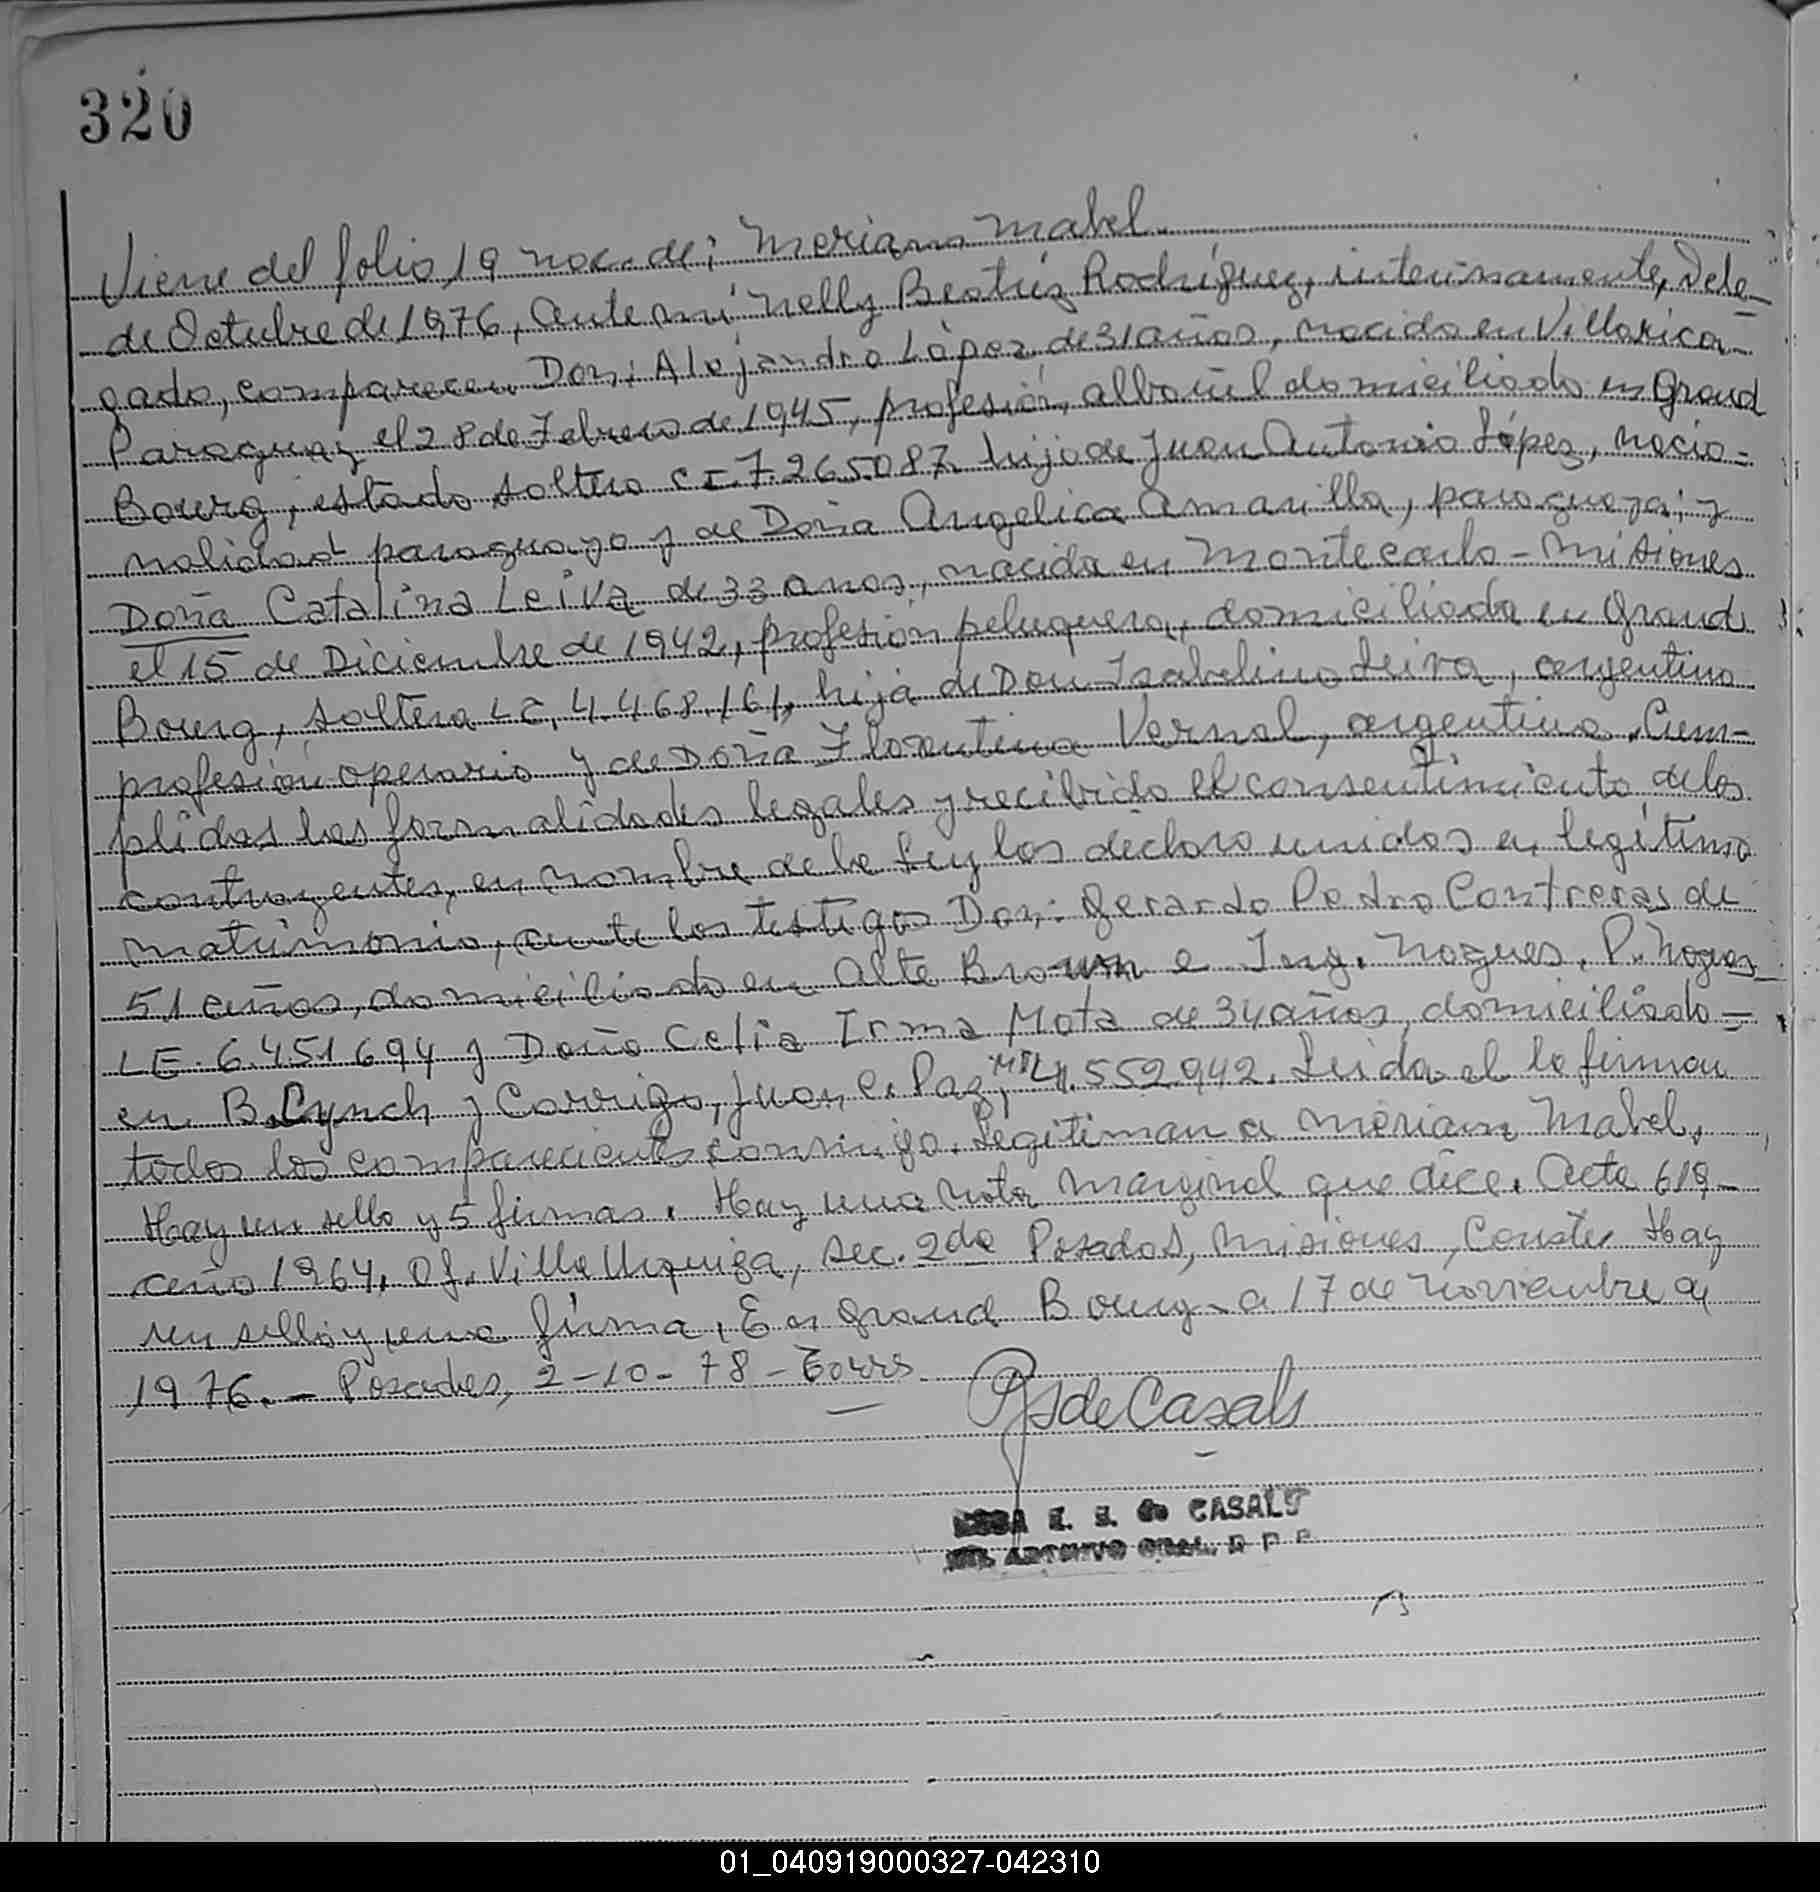 320
Viene del folio, 19 noc. de; Meriam Mabel
de Octubre de 1976, Ante mi Nelly Beatriz Rodríguez, interinamente, Dele-
gado, comparecen Don: Alejandro López de 31 años, nacido en Villarica-
Paraguay el 28 de Febrero de 1945, profesión, albañil domiciliado en Grand
Bourg, estado soltero C I. 7.265.087 hijo de Juan Antonio López, nacio-
nalidad paraguayo y de Doña Angelica Amarilla, paraguaya; y
Doña Catalina Leiva de 33 anos, nacida en Montecarlo - Misiones
el 15 de Diciembre de 1942, profesión peluquera, domiciliada en Grand
Bourg, soltera LC, 4.468.161, hija de Don Isabelino Leiva, argentino
profesión operario y de Doña Florentina Vernal, argentina. Cum-
plidas las formalidades legales y recibido el consentimiento de los
contrayentes, en nombre de la Ley los declaro unidos en legítimo
matrimonio, ante los testigos Don: Gerardo Pedro Contreras de
51 años, domiciliado en Alte Brown e Ing. Nogues. P. Nogues
LE. 6.451694 y Doña Celia Irma Mota de 34 años, domiciliado =
en B. Lynch y Corrigo, Juan C. Paz, 4.552.942. Leida el la firman
todos los comparecientes conmigo. Legitiman a Meriam Mabel.
Hay un sello y 5 firmas. Hay una nota marginal que dice. Acta 619-
año 1964, Of. Villa Urquiza, Sec. 2da Posadas, Misiones, Conste Hay
un sello y una firma. En Grand Bourg a 17 de Noviembre de
1976. - Posadas, 2-10-78 -
de Casals
E. S. de CASALS
ARCHIVO GRAL. R P P
01_040919000327-042310